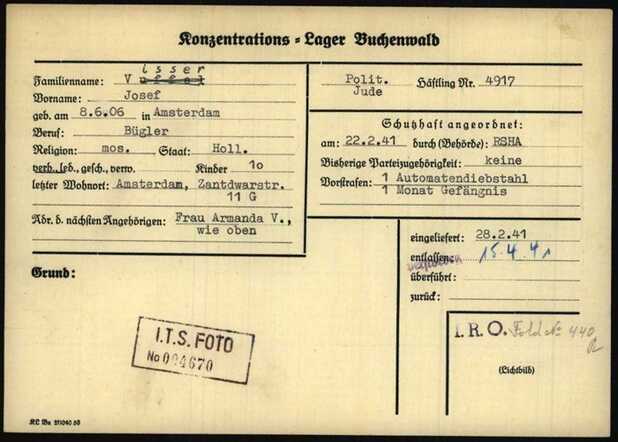 Konzentrations-Lager Buchenwald
Familienname: Visser
Vorname: Josef
geb. am 8.6.06 in Amsterdam
Beruf: Bügler
Religion: mos. Staat: Holl.
verh., led., gesch., verw. Kinder 10
letzter Wohnort: Amsterdam, Zantdwarstr.
11 G
Adr. d. nächsten Angehörigen: Frau Armanda V.,
wie oben
Grund:
Polit. Häftling Nr. 4917
Jude
Schutzhaft angeordnet:
am: 22.2.41 durch (Behörde): RSHA
Bisherige Parteizugehörigkeit: keine
Vorstrafen: 1 Automatendiebstahl
1 Monat Gefängnis
eingeliefert: 28.2.41
entlassen: 15.4.41
verstorben
überführt:
zurück:
I.R.O. Fold No 440
(Lichtbild)
I.T.S. FOTO
No 004670
KL Bu